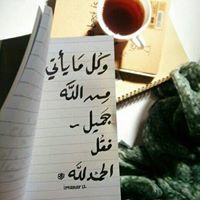 وكل ما يأتي
من الله
جميل ~
فقل
الحمد لله